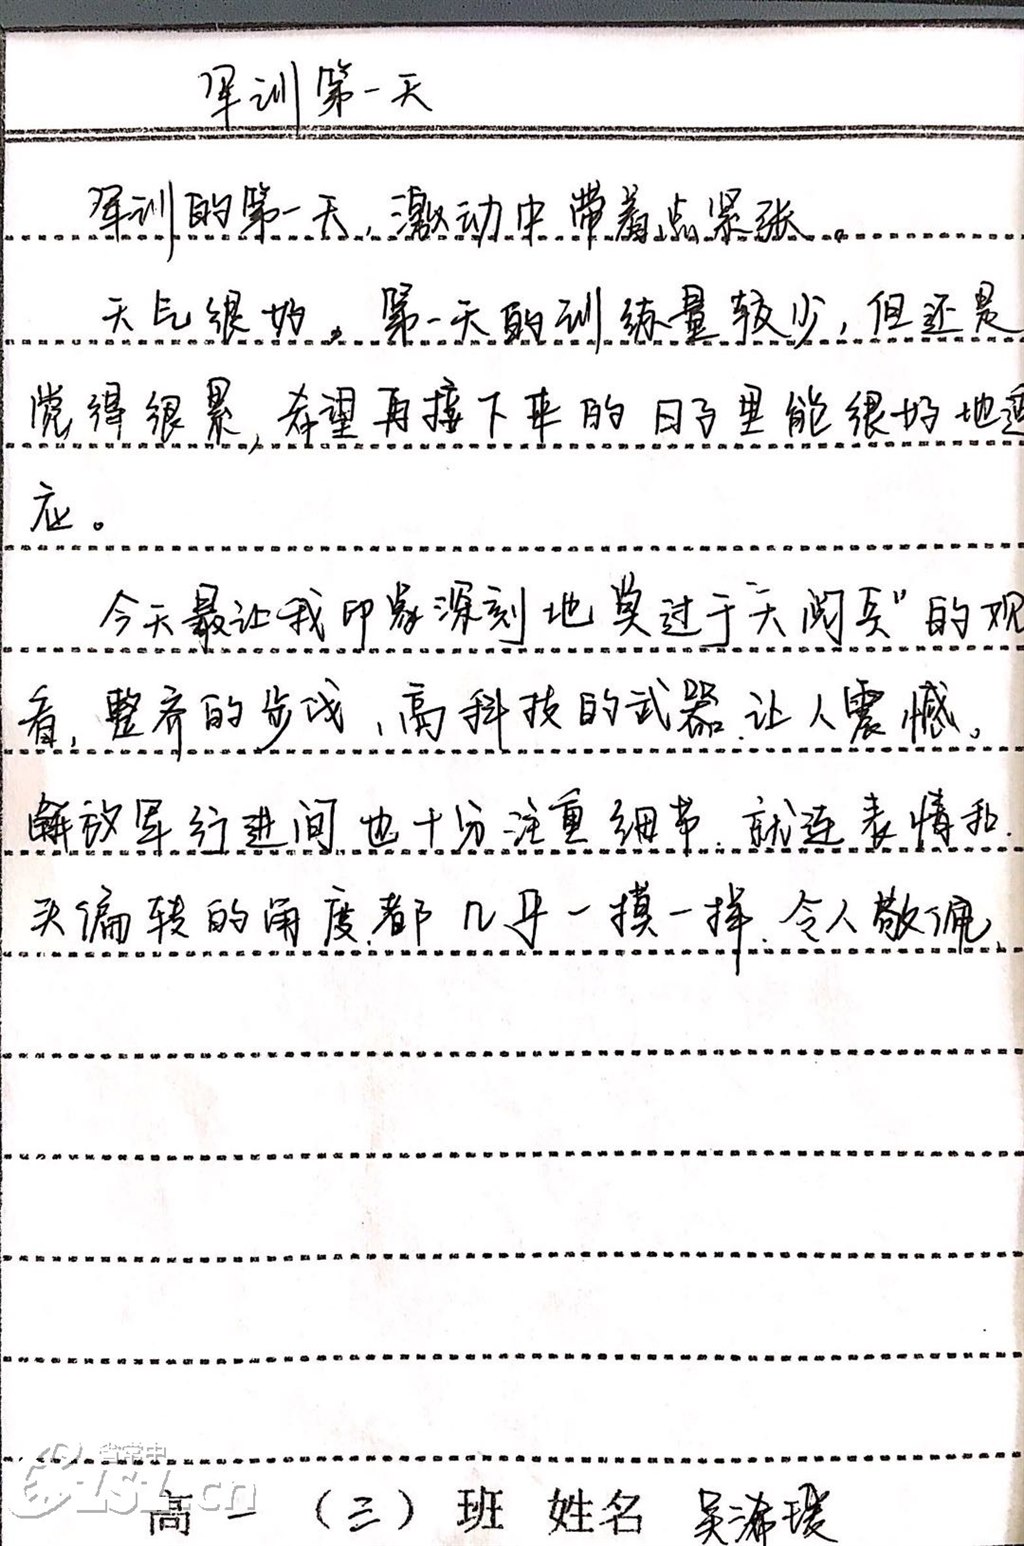 军训第一天
军训的第一天,激动中带着点紧张。
天气很好。第一天的训练量较少,但还是
觉得很累,希望再接下来的日子里能很好地适
应。
今天最让我印象深刻地莫过于"大阅兵"的观
看,整齐的步伐,高科技的武器.让人震憾。
解放军行进间也十分注重细节.就连表情和
头偏转的角度.都几乎一摸一样.令人敬佩.
省常中
ZSZ.cn
高一(三)班 姓名 吴浠瑗